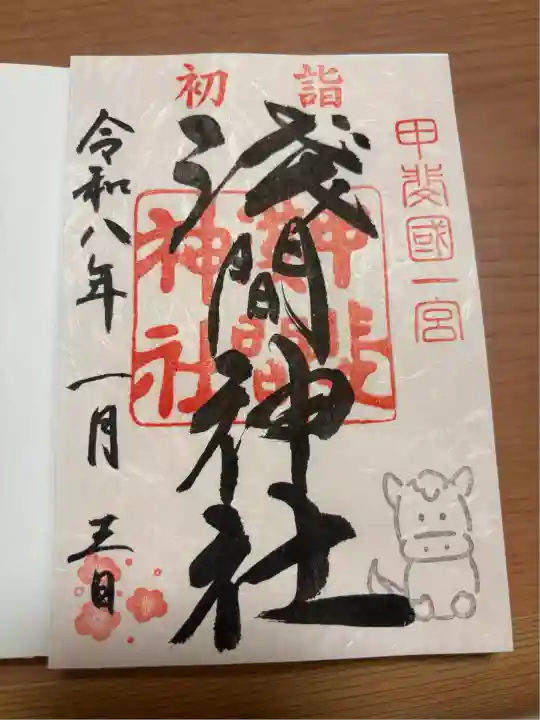 初詣
甲斐國一宮
浅間神社
甲斐
淺間
神社
令和八年一月三日